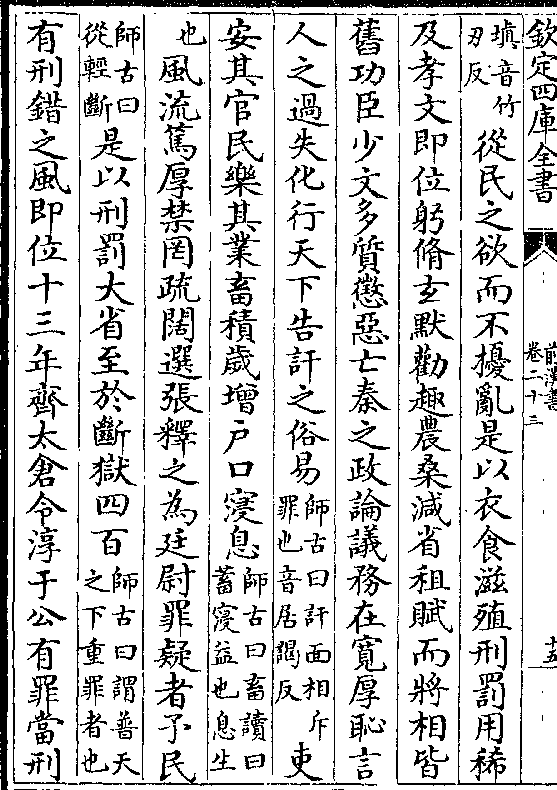 欽定四庫全書
前漢書
卷二十三
十五
塡音竹
刃反
從民之欲而不擾亂是以衣食滋殖刑罰用稀
及孝文即位躬脩𤣥默勸趣農桑減省租賦而將相皆
舊功臣少文多質懲惡亡秦之政論議務在寛厚恥言
人之過失化行天下告訐之俗易
師古曰訐面相斥
罪也音居謁反
吏
安其官民樂其業畜積歲增戸口寖息
師古曰畜讀曰
蓄寖益也息生
也
風流篤厚禁罔疏闊選張釋之為廷尉罪疑者予民
師古曰
從輕斷
是以刑罰大省至於斷獄四百
師古曰謂普天
之下重罪者也
有刑錯之風即位十三年齊太倉令淳于公有罪當刑